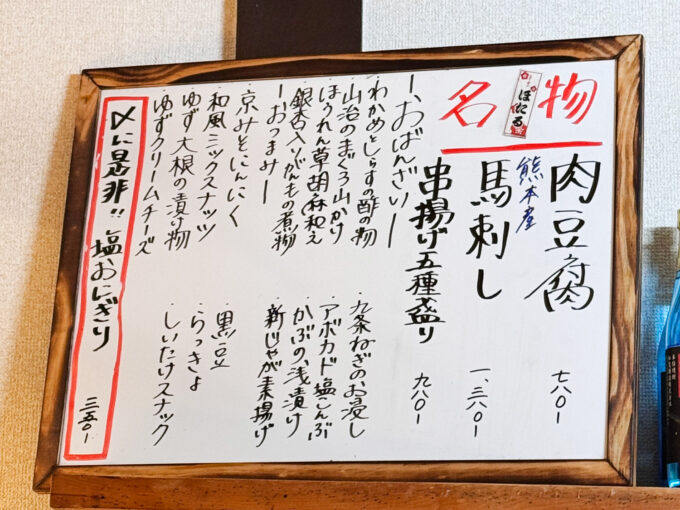 名物
ほたる
肉豆腐 七八〇-
熊本産
馬刺し 一、三八〇-
串揚げ五種盛り 九八〇-
ーおばんざいー
・わかめとしらすの酢の物
・山治のまぐろ山かけ
・ほうれん草胡麻和え
・銀杏入りがんもの煮物
・九条ねぎのお浸し
・アボカド塩こんぶ
・かぶの浅漬け
・新じゃが素揚げ
ーおつまみー
・京みそにんにく
・和風ミックスナッツ
・ゆず大根の漬け物
・ゆずクリームチーズ
・黒豆
・らっきょ
・しいたけスナック
〆に是非!!塩おにぎり 三五〇-